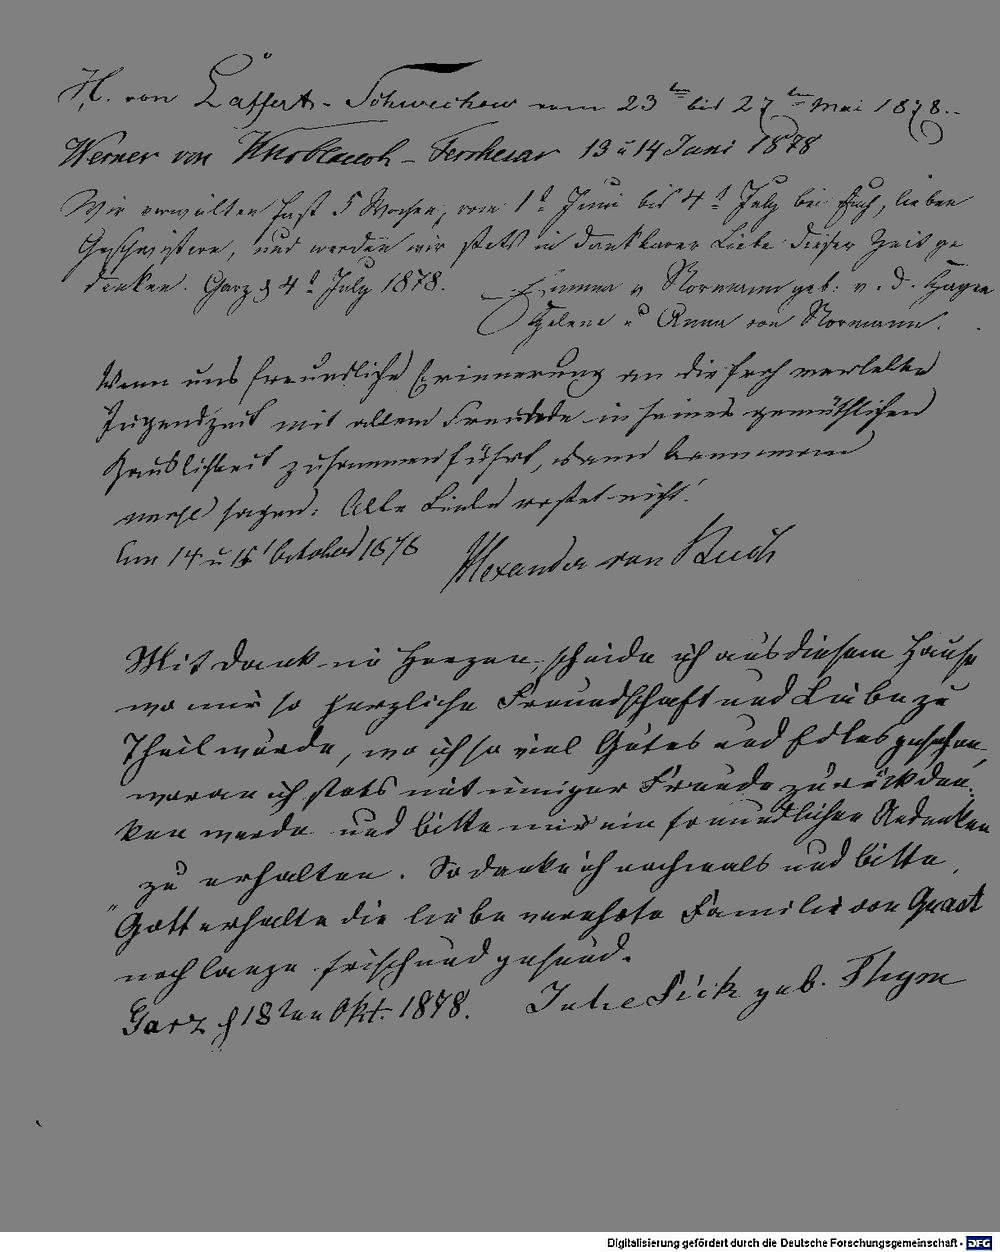 H. von Laffert-Schwechow vom 23ten bis 27ten Mai 1878.
Werner von Knobelauch - Ferchesar 13 u 14 Juni 1878
Wir verweilten fast 5 Wochen, vom 1t Juni bis 4t July bei Euch, lieben
Geschwistern, und werden wir stets in dankbarer Liebe dieser Zeit ge
denken. Garz d 4t July 1878. Emma v Normann geb: v. d. Hagen
Helene u Anna von Normann.
Wenn uns freundliche Erinnerung an die froh verlebte
Jugendzeit mit altem Freunde in seiner gemüthlichen
Häuslichkeit zusammenführt, dann kann man
wohl sagen: Alte Liebe rostet nicht!
am 14 u 15 October 1878 Alexander von
Mit Dank im Herzen, scheide ich aus diesem Hause
wo mir so herzliche Freundschaft und Liebe zu
Theil wurde, wo ich so viel Gutes und Edles gesehen,
woran ich stets mit inniger Freude zurückden-
ken werde und bitte mir ein freundliches Andenken
zu erhalten. So danke ich nochmals und bitte,
"Gott erhalte die liebe verehrte Familie von Quast
noch lange frisch und gesund.
Garz d 18ten Okt. 1878. Julie Fick geb. Thym